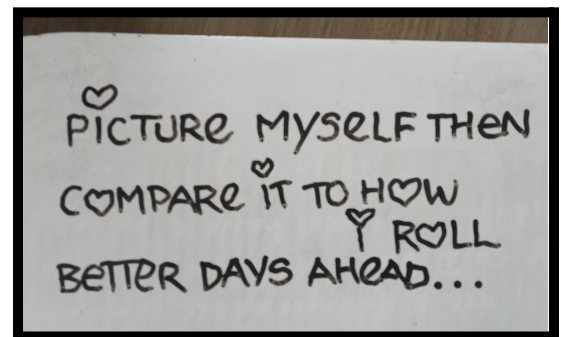 PiCTURe MySeLF THeN
COMPARe iT TO HOW
i ROLL
BeTTeR DAYS AHeAD...